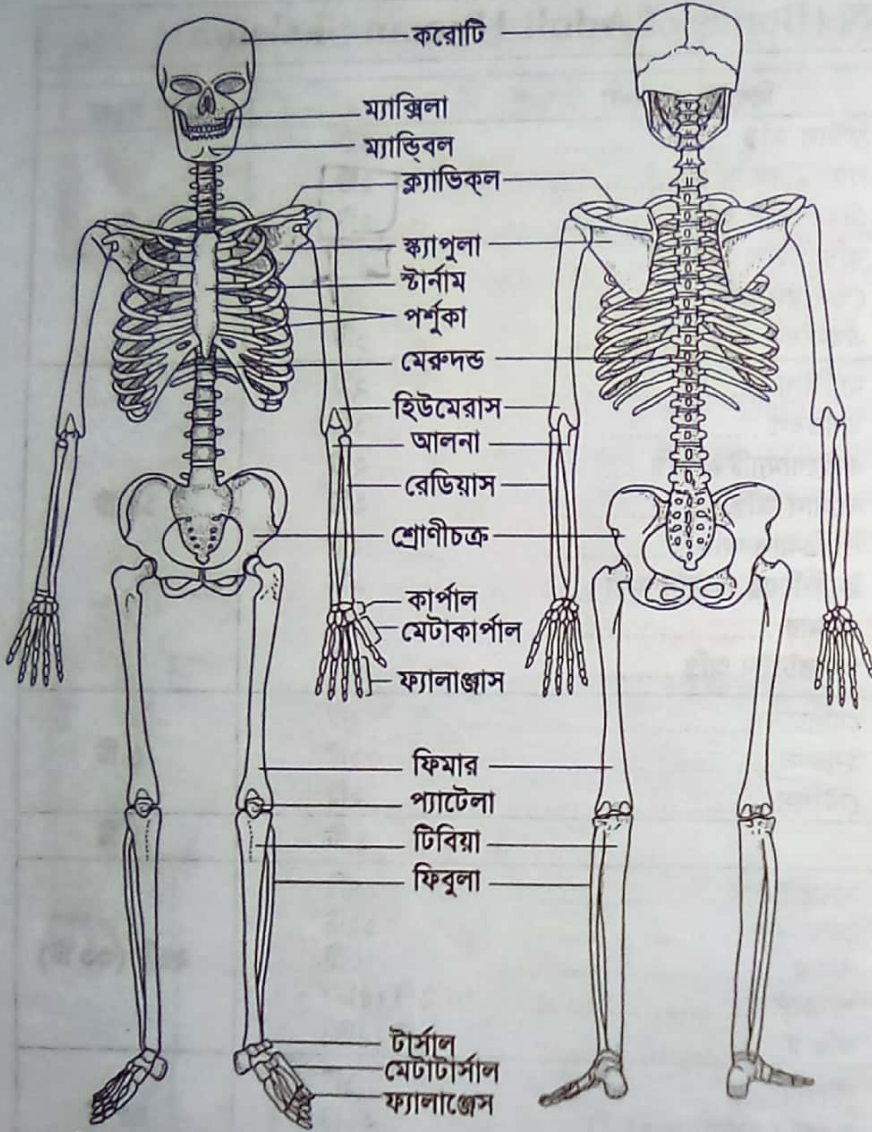 করোটি
ম্যাক্সিলা
ম্যান্ডিবল
ক্ল্যাভিক্‌ল
স্ক্যাপুলা
স্টার্নাম
পর্শুকা
মেরুদন্ড
হিউমেরাস
আলনা
রেডিয়াস
শ্রোণীচক্র
কার্পাল
মেটাকার্পাল
ফ্যালাঞ্জাস
ফিমার
প্যাটেলা
টিবিয়া
ফিবুলা
টার্সাল
মেটাটার্সাল
ফ্যালাঞ্জেস